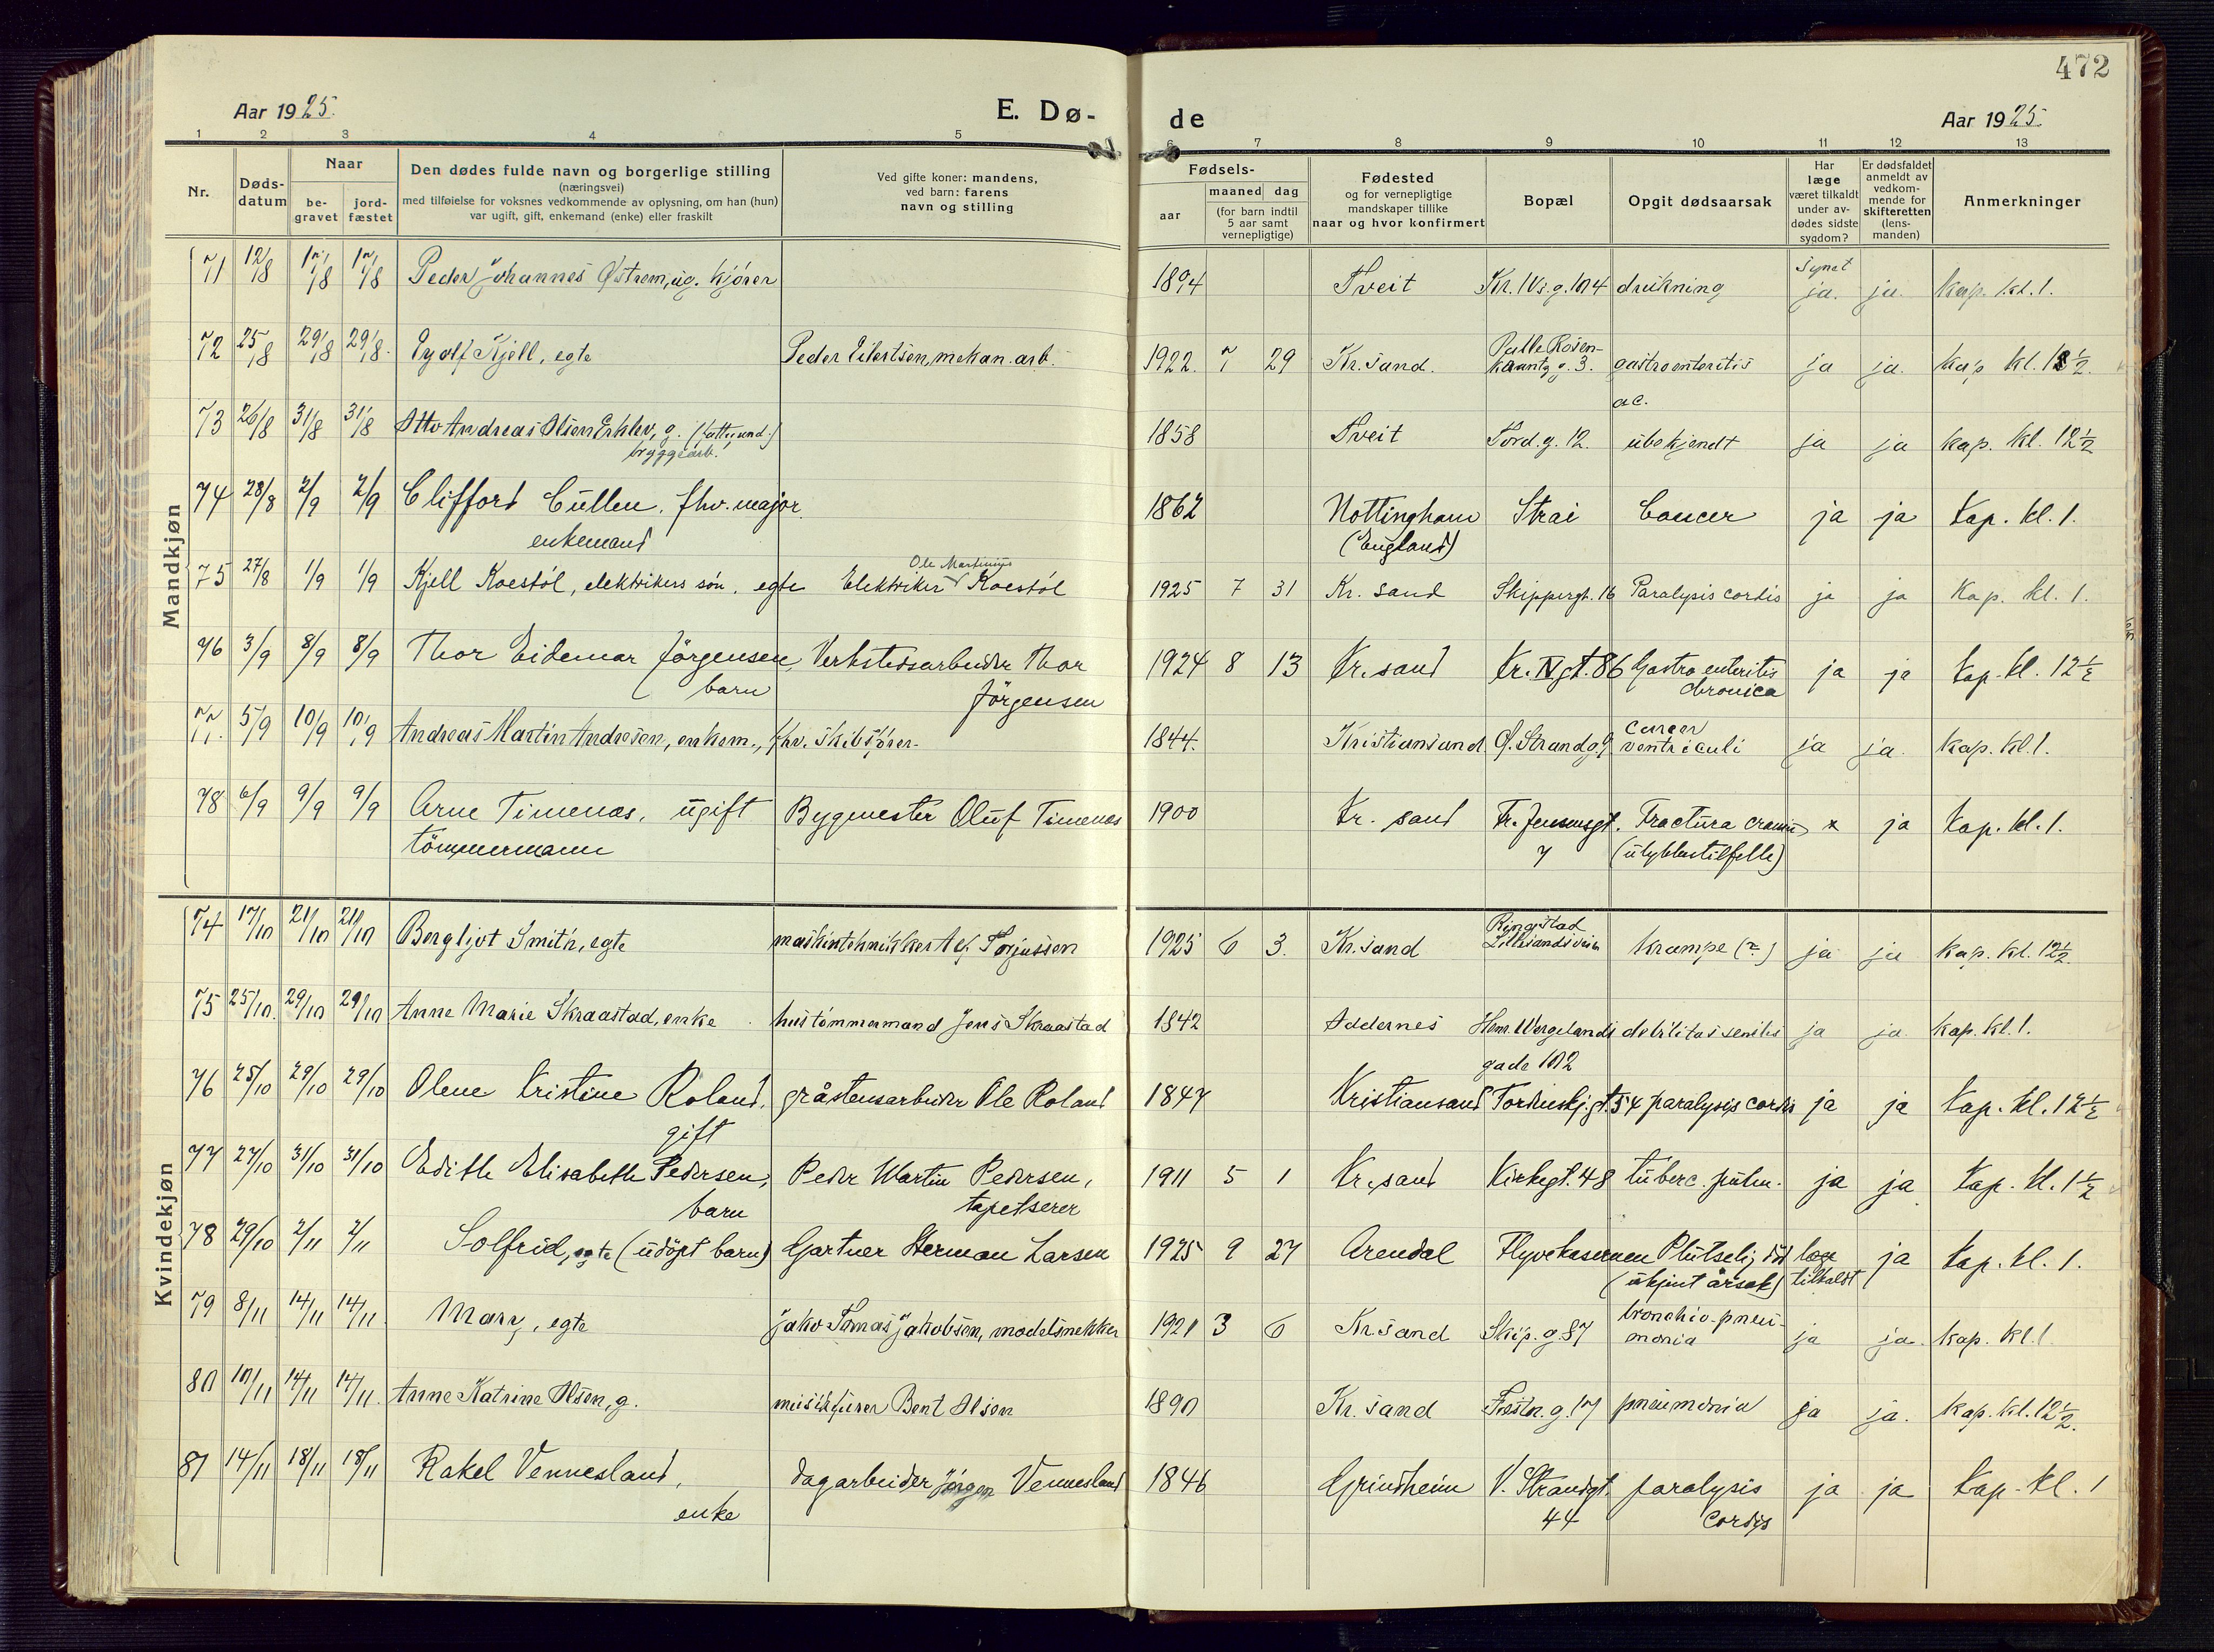 472
Aar 1925. E. Dø- de Aar 1925.
1 2 3 4 5 6 7 8 9 10 11 12 13
Nr. Døds-datum Naar be-gravet jord-fæstet Den dødes fulde navn og borgerlige stilling (næringsvei) med tilføielse for voksnes vedkommende av oplysning, om han (hun) var ugift, gift, enkemand (enke) eller fraskilt Ved gifte koner: mandens, ved barn: farens navn og stilling Fødsels- aar maaned dag (for barn indtil 5 aar samt vernepligtige) Fødested og for vernepligtige mandskaper tillike naar og hvor konfirmert Bopæl Opgit dødsaarsak Har læge været tilkaldt under av-dødes sidste sygdom? Er dødsfaldet anmeldt av vedkom-mende for skifteretten (lens-manden) Anmerkninger
Mandkjøn
71 12/8 17/8 17/8 Peder Johannes Østrem, ug. kjører 1894 Tveit Kr. IVs. g. 104 drukning synet ja. ja. Kap. kl. 1.
72 25/8 29/8 29/8. Eyolf Kjell, egte Peder Eilertsen, mekan. arb. 1922. 7 29 Kr.sand. Palle Rosen-krantz g. 3. gastroenteritis ac. ja ja. Kap kl. 12½.
73 26/8 31/8 31/8 Otto Andreas Olsen g. bryggearb. 1858 Tveit Tord. g. 12. ubekjendt ja ja kap. kl. 12½
74 28/8 2/9 2/9 Clifford Cullen, fhv. major. enkemand 1862 Nottingham (England) Strai Cancer ja ja Kap. kl. 1.
75 27/8 1/9 1/9 Kjell Koestöl, elektrikers sön. egte Elektriker Ole Martinius Koestöl 1925 7 31 Kr. sand Skippergt. 16 Paralysis cordis ja ja Kap. kl. 1.
76 3/9 8/9 8/9 Thor Eidemar Jörgensen, barn Verkstedsarbeider Thor Jörgensen 1924 8 13 Kr.sand Kr. IV gt. 86 Gastroenteritis chronica ja ja Kap. kl. 12½
77. 5/9 10/9 10/9 Andreas Martin Andresen, enkem., fhv. skibsfører. 1844. Kristiansand Ø. Strandg. 9 cancer ventriculi ja ja. Kap. kl. 1.
78 6/9 9/9 9/9 Arne Timenes, ugift tömmermann Bygmester Oluf Timenes 1900 Kr. sand Fr. Jensensgt. 7 Fractura cranii (ulykkestilfelle) x ja Kap. kl. 1.
Kvindekjøn
74 17/10 21/10 21/10 Bergljot Smith, egte maskintehnikker Alf Torjussen 1925 6 3. Kr.sand Ringstad Lillesandsvein krampe (?) ja ja kap. kl. 12½.
75 25/10. 29/10 29/10 Anne Marie Skraastad, enke hustømmermand Jens Skraastad 1842 Oddernes Henr. Wergelands gade 102 debilitas senilis ja ja. kap. kl. 1.
76 25/10 29/10 29/10 Olene Kristine Roland, gift gråstensarbeider Ole Roland 1847 Kristiansand Tordenskj. gt. 54 paralysis cordis ja ja Kap. kl. 12½
77 27/10 31/10 31/10 Edith Elisabeth Pedersen, barn Peder Martin Pedersen, tapetserer 1911 5 1 Kr.sand Kirkegt. 48 tuberc. pulm. ja ja Kap. kl. 1½
78 29/10 2/11 2/11 Solfrid, egte (udöpt barn) Gartner Herman Larsen 1925 9 27 Arendal Flyvekasernen Plutselig död (ukjent årsak) læge tilkaldt ja Kap. kl. 1.
79 8/11 14/11 14/11. Mary, egte Jakob Tomas Jakobsen, modelsnekker 1921 3 6 Kr.sand Skip. g. 87 bronchio-pneu-monia ja ja. kap. kl. 1.
80 10/11 14/11 14/11. Anne Katrine Olsen, g. Bent Olsen 1890 Kr. sand Festn. g. 17 pneumonia ja ja. kap. kl. 12½.
81 14/11 18/11 18/11 Rakel Vennesland, enke dagarbeider Jörgen Vennesland 1846 Grindheim V. Strandgt. 44 paralysis cordis ja ja Kap. kl. 1